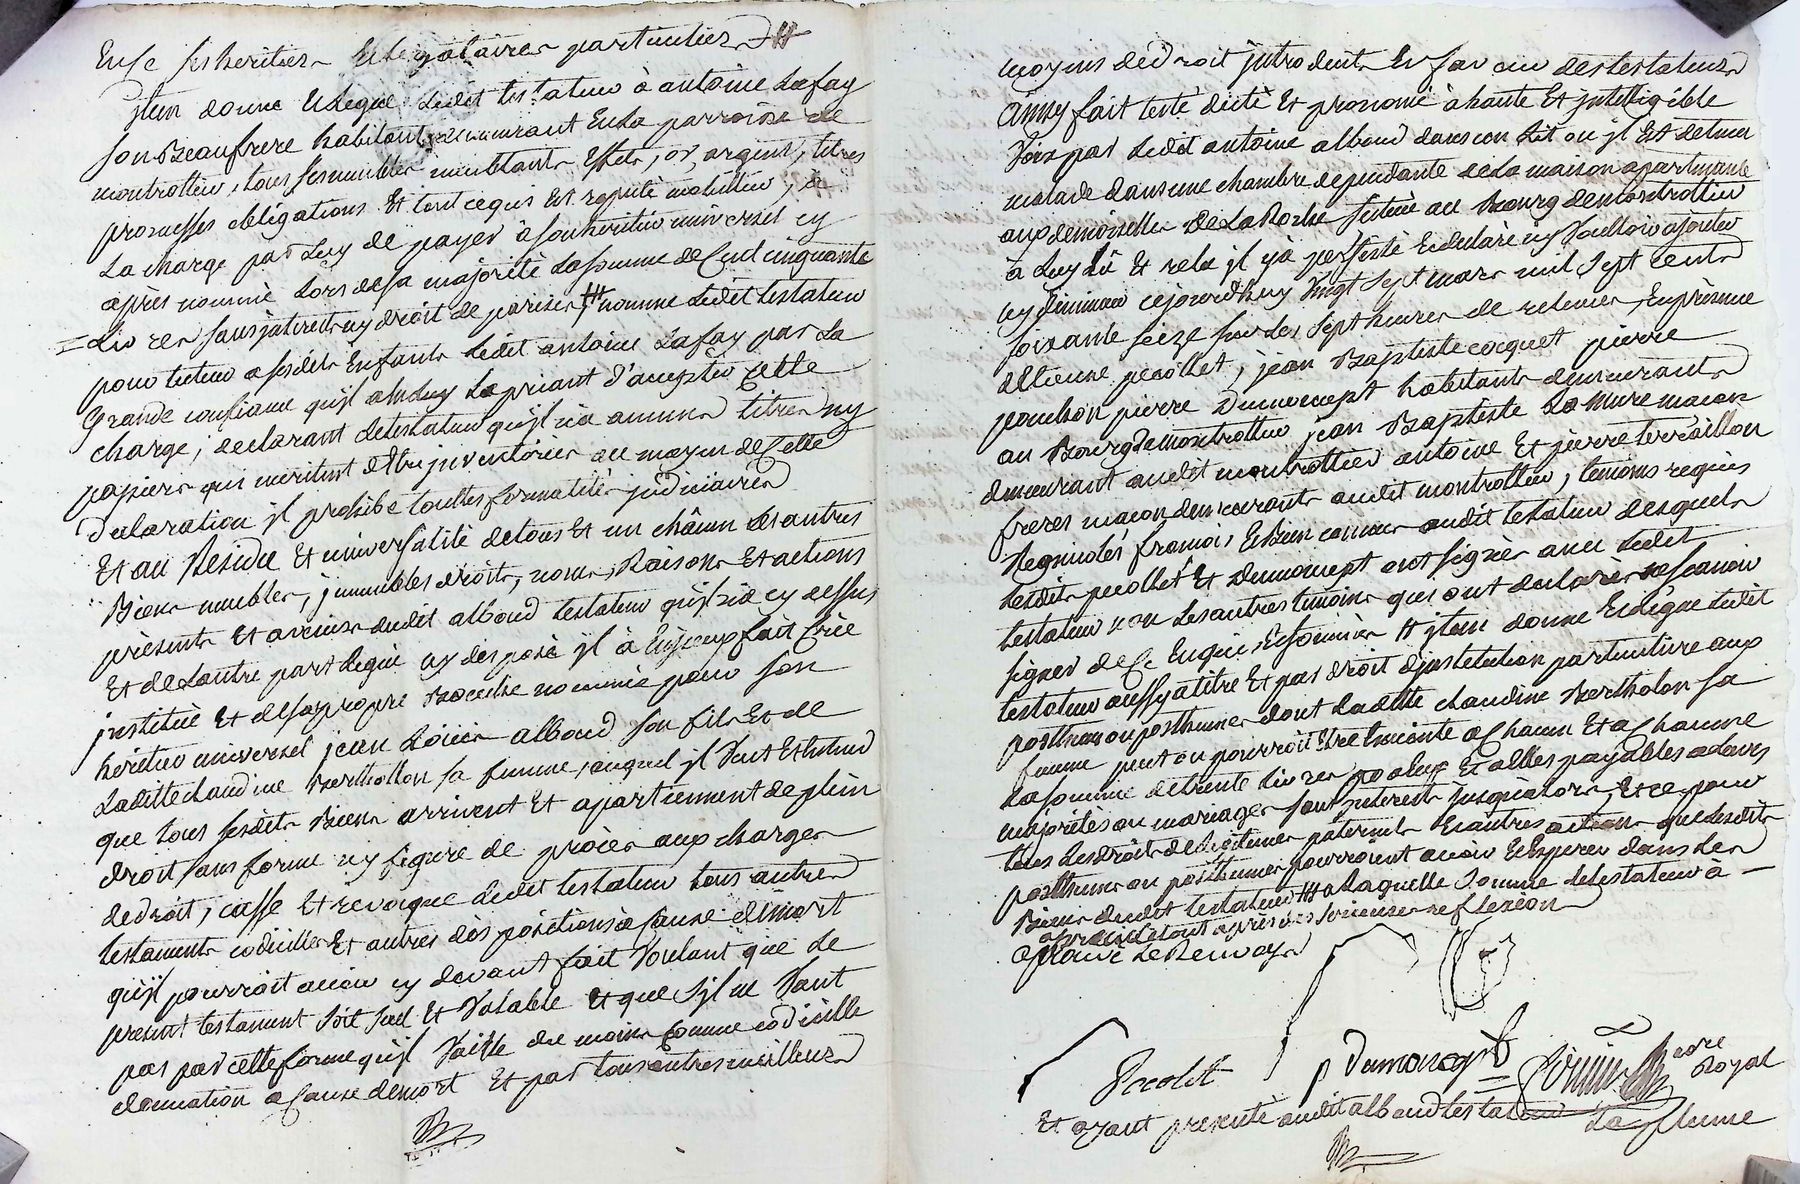 En ce ses heritiers Et legataires particuliers #
Jtem donne Et Legue Ledit testateur à antoine Lafay
son Beaufrere habitant demeurant En La parroisse de
montrottier, tous ses meubles meublants Effets, or, argent, titres
promesses obligations Et tout cequi Est reputé mobilier, a
La charge par Luy de payer a son heritier universel cy
après nommé Lors de sa majorité La somme de Cent cinquante
= Livres sans jnterets ny droit de parisis ## nomme Ledit testateur
pour tuteur a sesdits Enfants Ledit antoine Lafay par La
Grande confiance qu'jl a En Luy Le priant d'accepter Cette
charge; declarant Le testateur qu'jl n'a aucuns titres ny
papiers qui meritent d'Etre jnventoriés au moyen de Cette
declaration jl prohibe touttes formalités judiciaires
Et au Residu Et universalité de tous Et un châcun Ses autres
Biens meubles, jmmeubles droits, noms, Raisons Et actions
présents Et avenir dudit alboud testateur qu'jl n'a cy dessus
Et delautre part Legué ny disposé jl à Enjceux fait Crée
jnstitué Et desapropre Bouche nommé pour son
heritier universel jean Loüis alboud son fils Et de
Laditte claudine Berthollon sa femme, auquel jl Veut Et Entend
que tous sesdits Biens arrivent Et apartiennent de plein
droit sans forme ny figure de procés aux charges
de droit, casse Et révoque Ledit testateur tous autres
testaments codicilles Et autres dispositions à cause de mort
qu'jl pourroit avoir cy devant fait Voulant que Le
present testament soit seul Et Valable Et que s'jl ne Vaut
pas par cette forme qu'jl Vaille du moins Comme codicille
donnation a Cause de mort Et par tous autres meilleurs
moyens de droit jntroduits En faveur des testateurs
Ainsy fait testé dicté Et prononcé à haute Et jntelligible
Voix par Ledit antoine alboud dans son Lit ou jl Est detenu
malade dans une chambre dependante de La maison apartenante
aux demoiselles De La Roche scituée au Bourg de montrottier
à Luy Lû Et relu jl y à persisté Et declaré n'y Vouloir ajouter
ny diminuer cejourdhuy Vingt sept mars mil sept cents
soixante seize sur Les sept heures de relevée, En présence
d'Etienne pecollet, jean Baptiste cocquet pierre
ponchon pierre Dumoncept habitants demeurants
au Bourg de montrottier jean Baptiste La mure macon
demeurant audit montrottier antoine Et pierre terraillon
freres macon demeurants audit montrottier, temoins requis
Regnicoles francois Et Bien connus audit testateur desquels
Lesdits pecollet Et Dumoncept ont signés avec Ledit
testateur non Les autres temoins qui ont declarés ne scavoir
signer de Ce Enquis Et sommés # jtem donne Et Legue Ledit
testateur aussy a titre Et par droit d'jnstitution particuliere aux
posthumes ou posthumes dont Laditte claudine Bertholon sa
femme peut ou pourroit Etre Enceinte a Chacun Et a Chacune
La somme de trente Livres a Eux Et a Elles payables a Leurs
majorités ou mariages sans jnterets jusqu'alors, Et ce pour
tous Les droits de Legitimes paternels Et autres actions que Lesdits
posthumes ou posthumes pourroient avoir Et Esperer dans Les
Biens dudit testateur ## a Laquelle Somme Le testateur à —
aprés Le tout après des serieuses reflexions
aprouvé Le Renvoy
Pecolet
p Dumoncept
Notre Royal
Et ayant presenté audit alboud testateur La plume